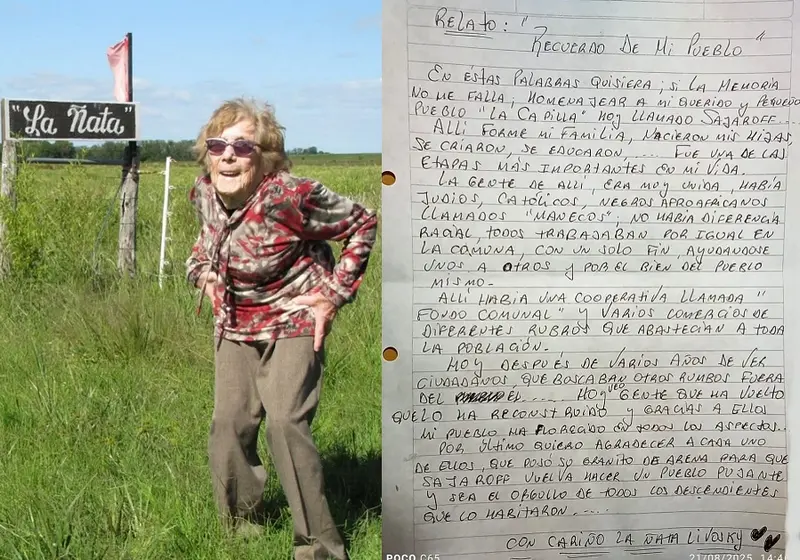 "La Ñata"
RELATO: "
RECUERDO DE MI PUEBLO"
EN ÉSTAS PALABRAS QUISIERA; SI LA MEMORIA
NO ME FALLA; HOMENAJEAR A MI QUERIDO Y PEQUEÑO
PUEBLO "LA CAPILLA" HOY LLAMADO SAJAROFF....
ALLI FORME MI FAMILIA, NACIERON MIS HIJAS,
SE CRIARON, SE EDUCARON, .... FUE UNA DE LAS
ETAPAS MÁS IMPORTANTES EN MI VIDA.
LA GENTE DE ALLI, ERA MUY UNIDA, HABÍA
JUDIOS, CATÓLICOS, NEGROS AFROAFRICANOS
LLAMADOS "MANECOS"; NO HABÍA DIFERENCIA
RACIAL, TODOS TRABAJABAN POR IGUAL EN
LA COMUNA, CON UN SOLO FIN, AYUDANDOSE
UNOS A OTROS Y POR EL BIEN DEL PUEBLO
MISMO.-
ALLI HABÍA UNA COOPERATIVA LLAMADA "
FONDO COMUNAL" Y VARIOS COMERCIOS DE
DIFERENTES RUBROS QUE ABASTECIAN A TODA
LA POBLACIÓN.
HOY DESPUÉS DE VARIOS AÑOS DE VER
CIUDADANOS, QUE BOSCABAN OTROS RUMBOS FUERA
DEL EL..... HOY VEO GENTE QUE HA VUELTO
QUELO HA RECONSTRUIDO Y GRACIAS A ELLOS
MI PUEBLO HA FLORECIDO EN TODOS LOS ASPECTOS..
POR ÚLTIMO QUIERO AGRADECER A CADA UNO
DE ELLOS, QUE PUSÓ SU GRANITO DE ARENA PARA QUE
SAJAROFF VUELVA HACER UN PUEBLO PUJANTE
Y SEA EL ORGULLO DE TODOS LOS DESCENDIENTES
QUE LO HABITARON.....
CON CARIÑO LA ÑATA LIVOSKY
POCO C65
21/08/2025 14:4